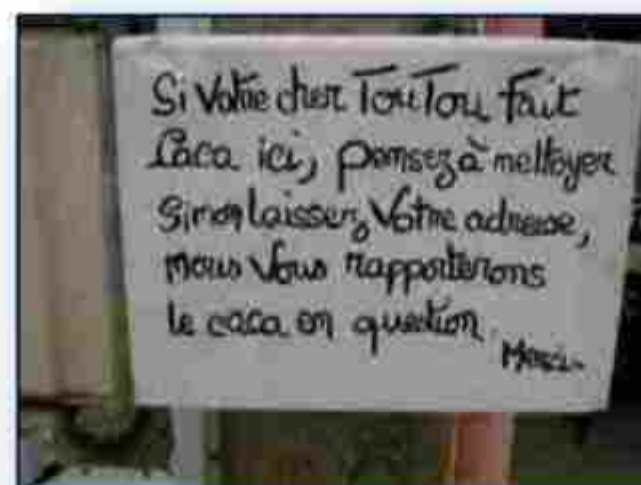 Si Votre cher TouTou fait
Caca ici, pensez à nettoyer
Sinon laissez Votre adresse,
nous Vous rapporterons
le caca en question
Merci.